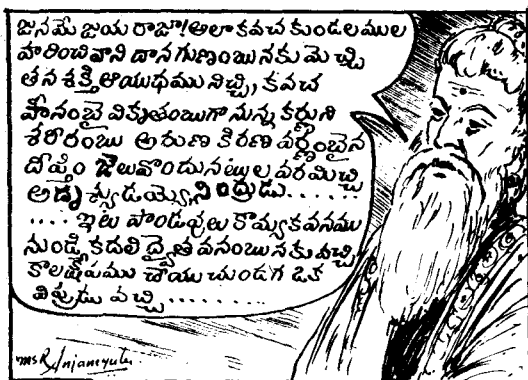 జనమేజయ రాజా! అలా కవచ కుండలముల
హరించివాని దాన గుణంబునకు మెచ్చి
తన శక్తి ఆయుధము నిచ్చి, కవచ
హీనంబై వికృతంబుగా నున్న కర్ణుని
శరీరంబు అరుణ కిరణ వర్ణంబైన
దీప్తిం జెలువొందునట్లుల వరమిచ్చి
అదృశ్యుడయ్యెనింద్రుడు......
.... ఇటు పాండవులు కామ్యకవనము
నుండ్కి కదలి ద్వైత వనంబునకు వచ్చి
కాలక్షేపము చేయు చుండగ ఒక
విప్రుడు వచ్చి.........
MSR Anjaneyulu